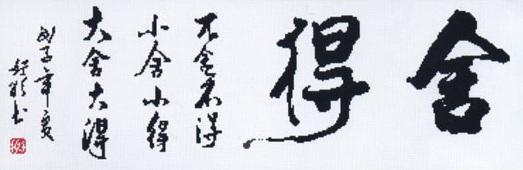 舍得
不舍不得
小舍小得
大舍大得
戊子年夏